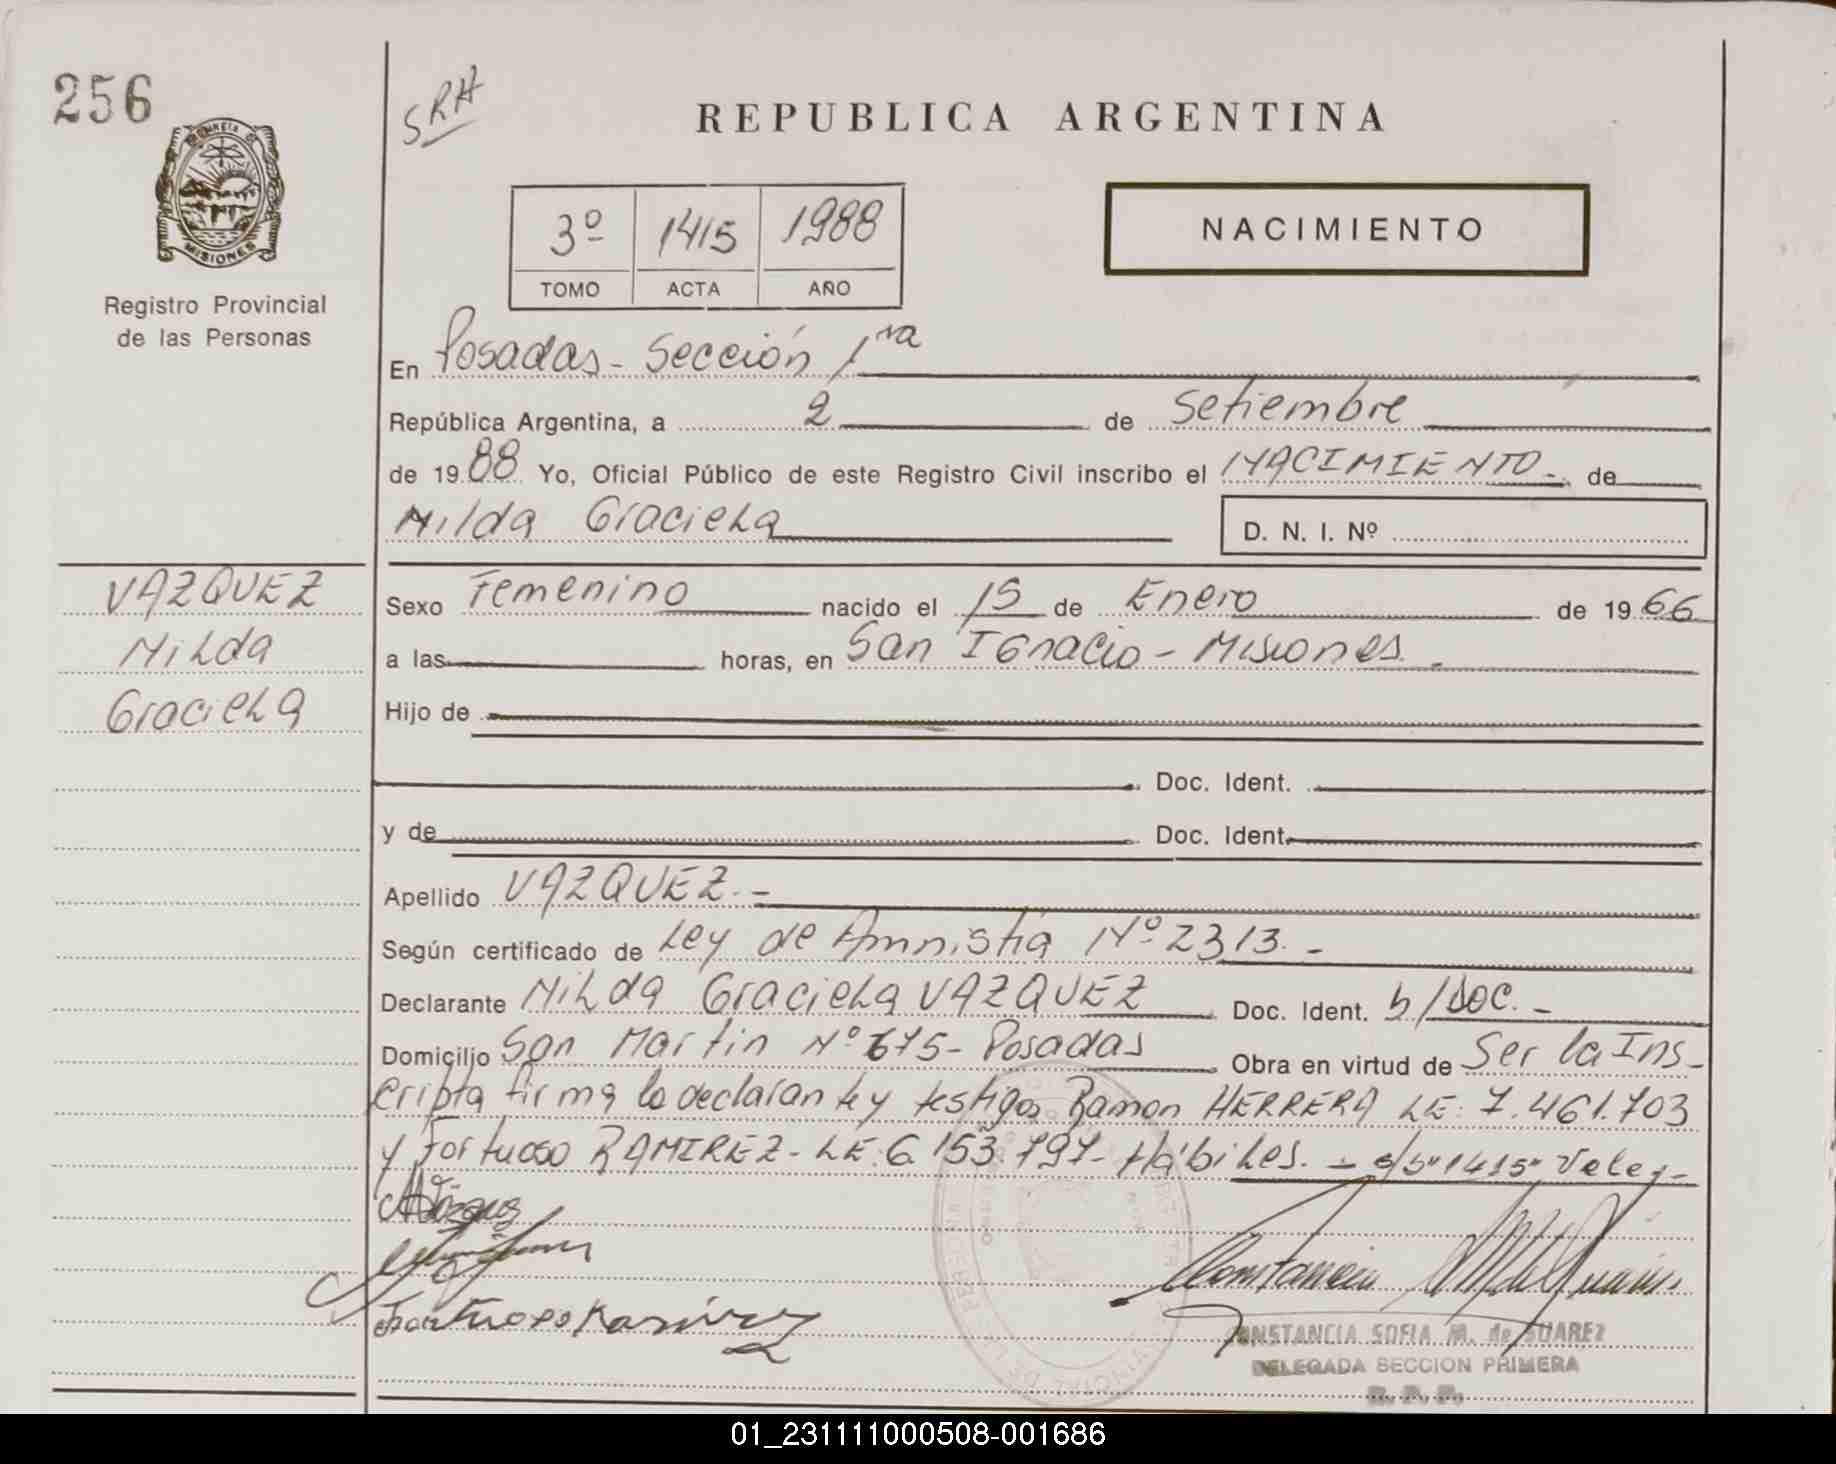 256
SRH
REPUBLICA ARGENTINA
PROVINCIA DE
MISIONES
Registro Provincial
de las Personas
3º 1415 1988
TOMO ACTA AÑO
NACIMIENTO
En Posadas - Sección 1ra
República Argentina, a 2 de Setiembre
de 1988 Yo, Oficial Público de este Registro Civil inscribo el NACIMIENTO - de
Nilda Graciela
D. N. I. Nº
VAZQUEZ
Nilda
Graciela
Sexo Femenino nacido el 15 de Enero de 1966
a las horas, en San Ignacio - Misiones. -
Hijo de
Doc. Ident.
y de Doc. Ident.
Apellido VAZQUEZ. -
Según certificado de Ley de Amnistía Nº 2313. -
Declarante Nilda Graciela VAZQUEZ Doc. Ident. S/DOC. -
Domicilio San Martin Nº 675 - Posadas Obra en virtud de Ser la Ins-
cripta firma la declarante y testigos Ramon HERRERA LE: 7.461.703
y Fortuoso RAMIREZ - LE: 6.153.797 - Hábiles. - s/b "1415" Vale y -
Fortuoso Ramírez
CONSTANCIA SOFIA M. de SUAREZ
DELEGADA SECCION PRIMERA
R. P. P.
01_231111000508-001686